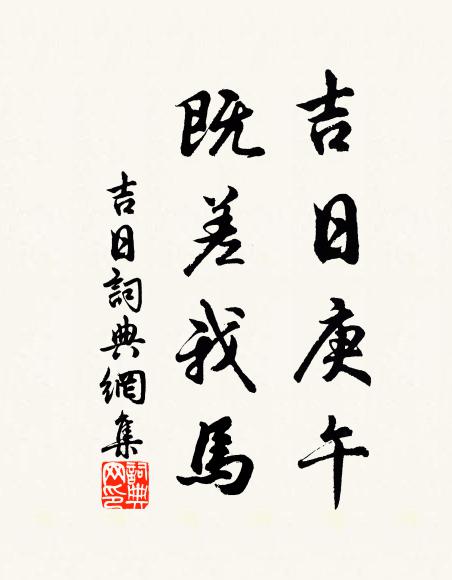 吉日庚午
既差我馬
吉日詞典網集
詞典网印